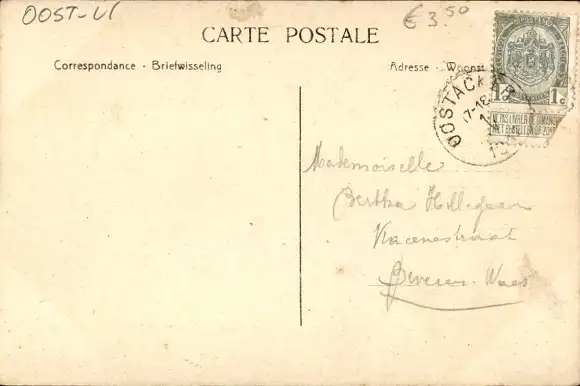 OOST-VL
€ 3.50
CARTE POSTALE
Correspondance - Briefwisseling
Adresse - Woonst
OOSTACKER
17-18
1c 1c
NE PAS LIVRER LE DIMANCHE
NIET BESTELLEN OP ZONDAG
Mademoiselle
Bertha
Beveren-Waes